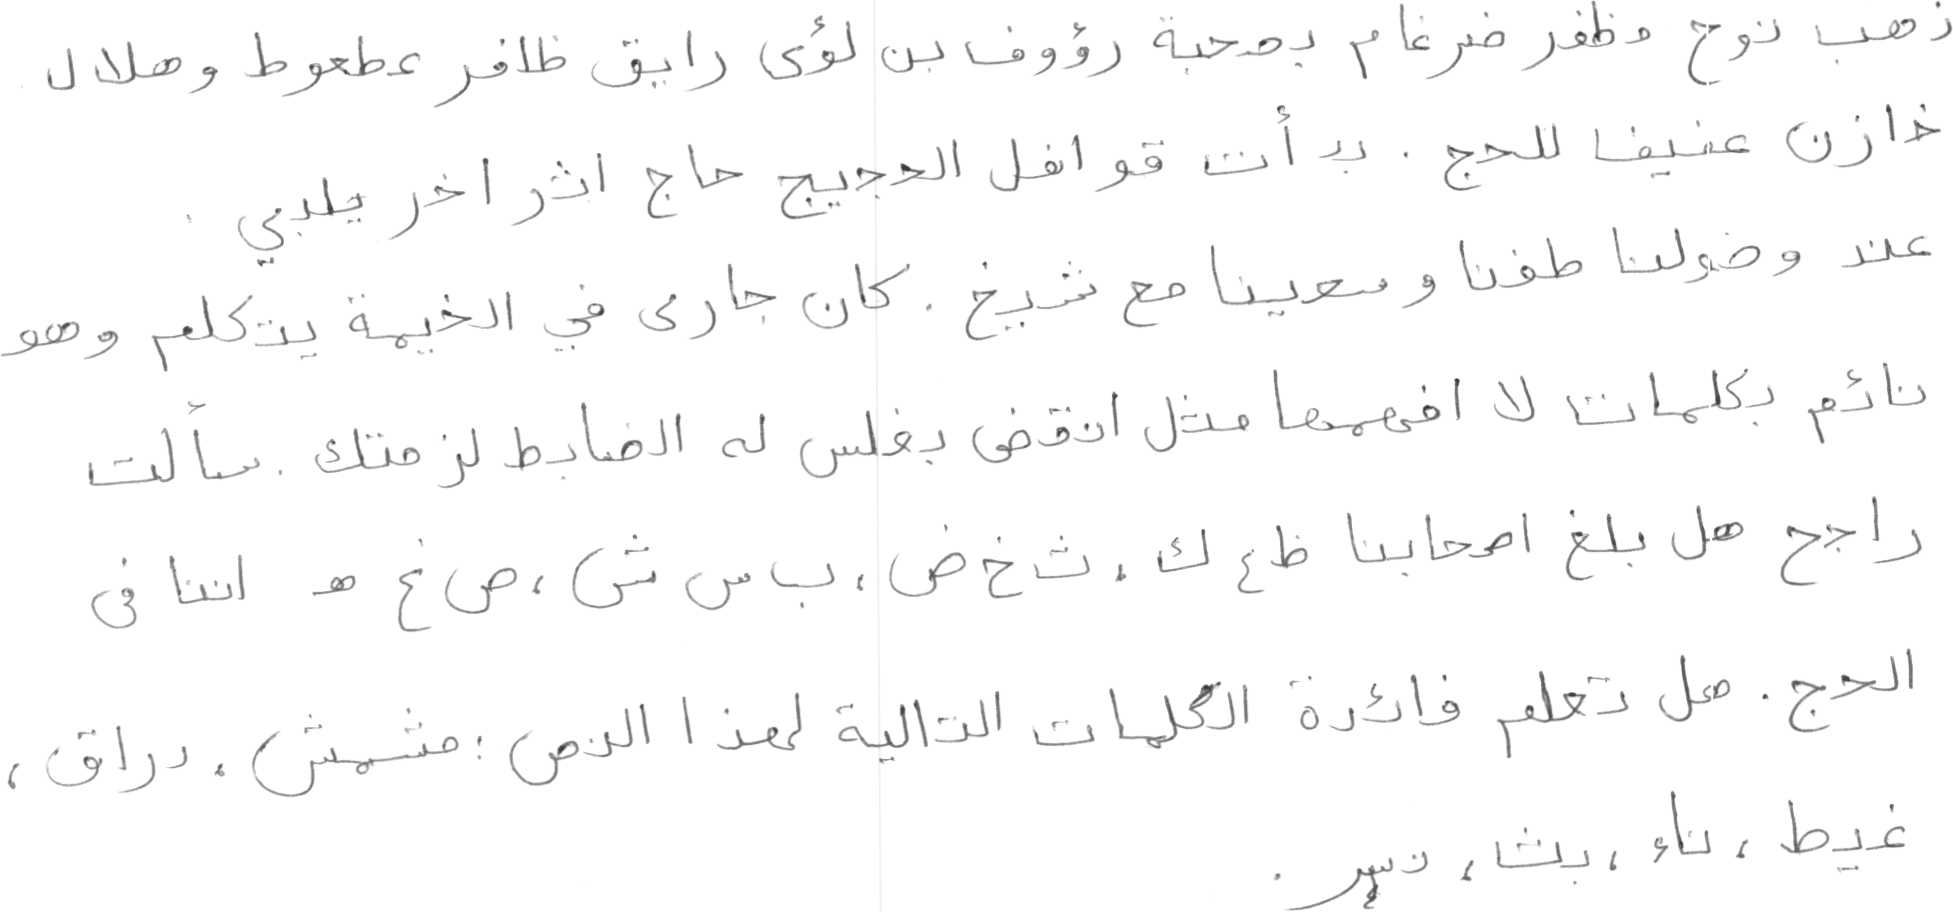 ذهب نوح مظفر ضرغام بصحبة رؤوف بن لؤى رايق ظافر عطعوط وهلال
خازن عفيفا للحج . بدأت قوافل الحجيج حاج اثر اخر يلبي .
عند وضولنا طفنا وسعينا مع شيخ . كان جارى في الخيمة يتكلم وهو
نائم بكلمات لا افهمها مثل انقض بغلس له الضابط لزمتك . سألت
راجح هل بلغ اصحابنا ظ ع ك ، ث خ ض ، ب س ش ، ص غ هـ اننا فى
الحج . هل تعلم فائدة الكلمات التالية لهذا النص : مشمش ، دراق ،
غيط ، ناء ، بث ،